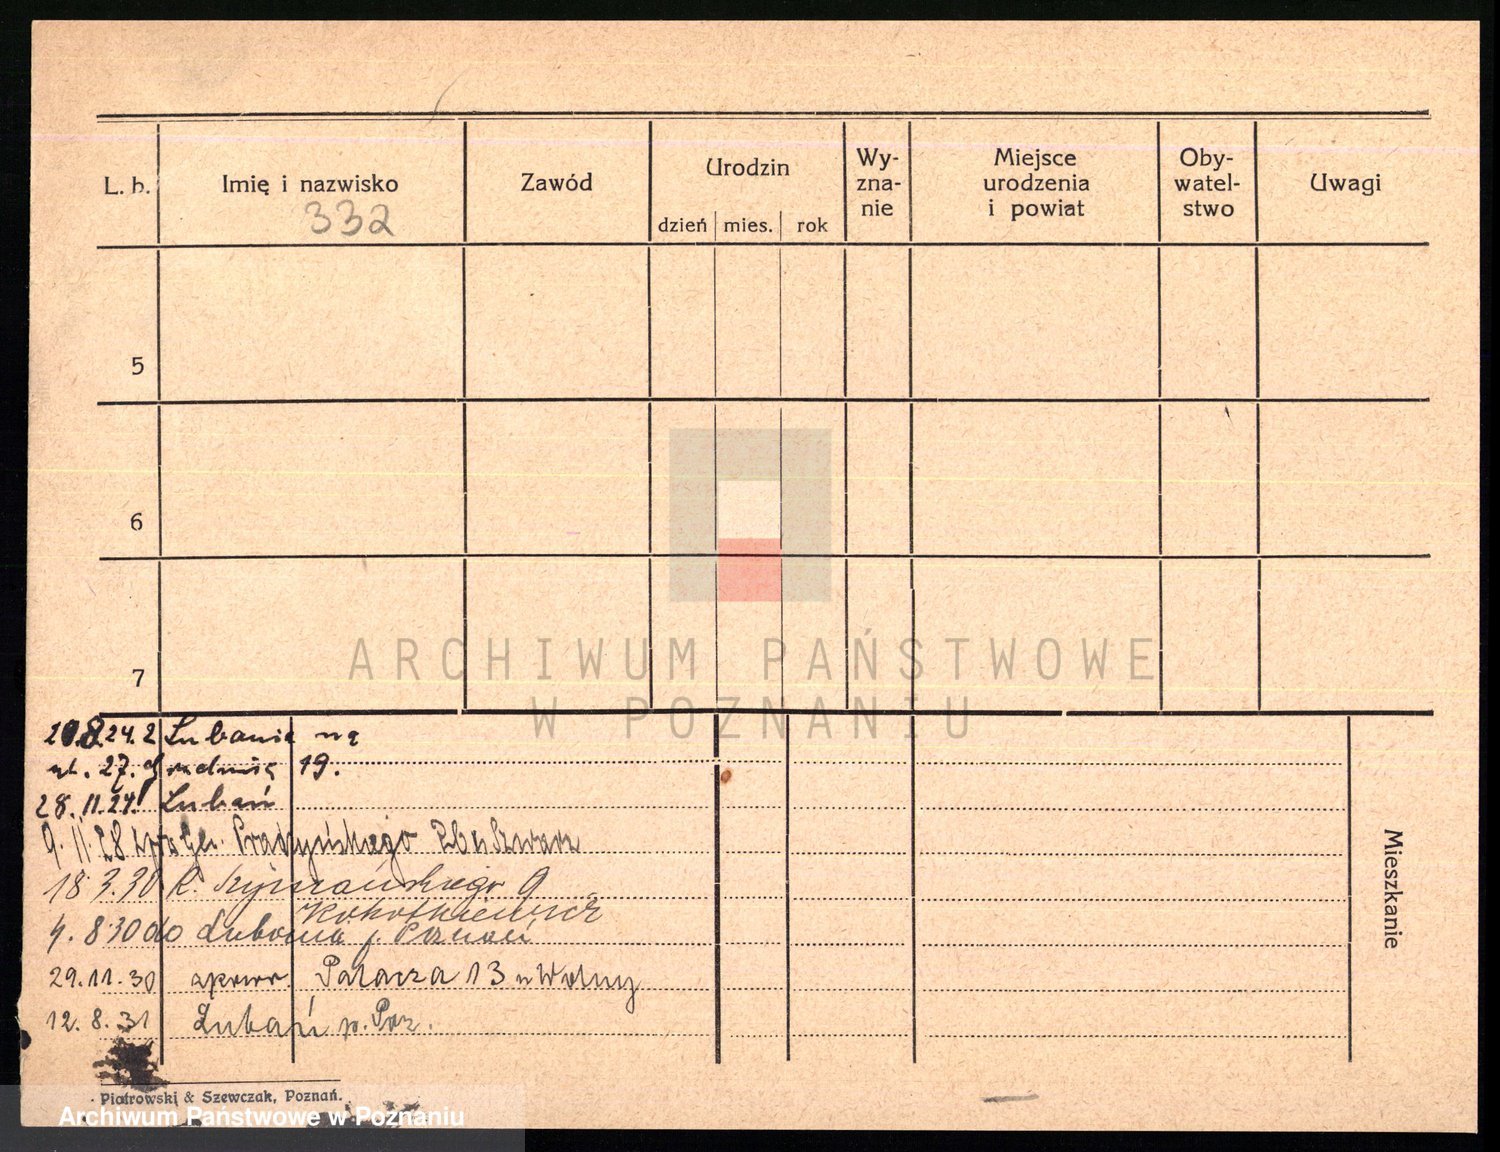 L. b.
Imię i nazwisko
332
Zawód
Urodzin
dzień mies. rok
Wy-
zna-
nie
Miejsce
urodzenia
i powiat
Oby-
watel-
stwo
Uwagi
5
6
7
ARCHIWUM PAŃSTWOWE
W POZNANIU
8.24. z Lubania na
ul. 27. Grudnia 19.
28.11.24. Lubań
9.11.28 Prądzyńskiego
18.3.30 R. Szymańskiego 9
4.8.30 do Lubonia p. Poznań
29.11.30 13 u Wolny
12.8.31 Lubań p. Poz.
Mieszkanie
Piotrowski & Szewczak, Poznań.
Archiwum Państwowe w Poznaniu